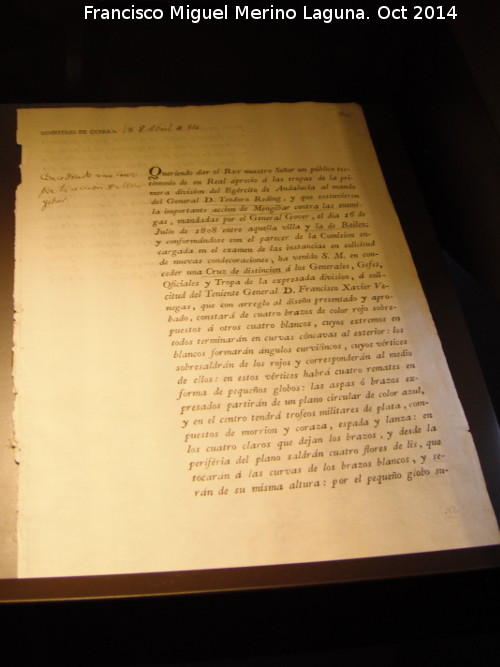 Francisco Miguel Merino Laguna. Oct 2014
MINISTERIO DE GUERRA.
Queriendo dar el Rey nuestro Señor un público tes-
timonio de su Real aprecio á las tropas de la pri-
mera division del Egército de Andalucía al mando
del General D. Teodoro Reding, y que estuvieron
la importante accion de Mengibar contra las enemi-
gas, mandadas por el General Gover, el dia 16 de
Julio de 1808 entre aquella villa y la de Bailen;
y conformándose con el parecer de la Comision en-
cargada en el examen de las instancias en solicitud
de nuevas condecoraciones, ha venido S. M. en con-
ceder una Cruz de distincion á los Generales, Gefes,
Oficiales y Tropa de la expresada division, á soli-
citud del Teniente General D. Francisco Xavier Ve-
negas, que con arreglo al diseño presentado y apro-
bado, constará de cuatro brazos de color rojo sobre-
puestos á otros cuatro blancos, cuyos extremos en
todos terminarán en curvas cóncavas al exterior: los
blancos formarán ángulos curvilíneos, cuyos vértices
sobresaldrán de los rojos y corresponderán al medio
de ellos: en estos vértices habrá cuatro remates en
forma de pequeños globos: las aspas ó brazos ex-
presados partirán de un plano circular de color azul,
y en el centro tendrá trofeos militares de plata, com-
puestos de morrion y coraza, espada y lanza: en
los cuatro claros que dejan los brazos, y desde la
periféria del plano saldrán cuatro flores de lis, que
tocaran á las curvas de los brazos blancos, y se-
rán de su misma altura: por el pequeño globo su-